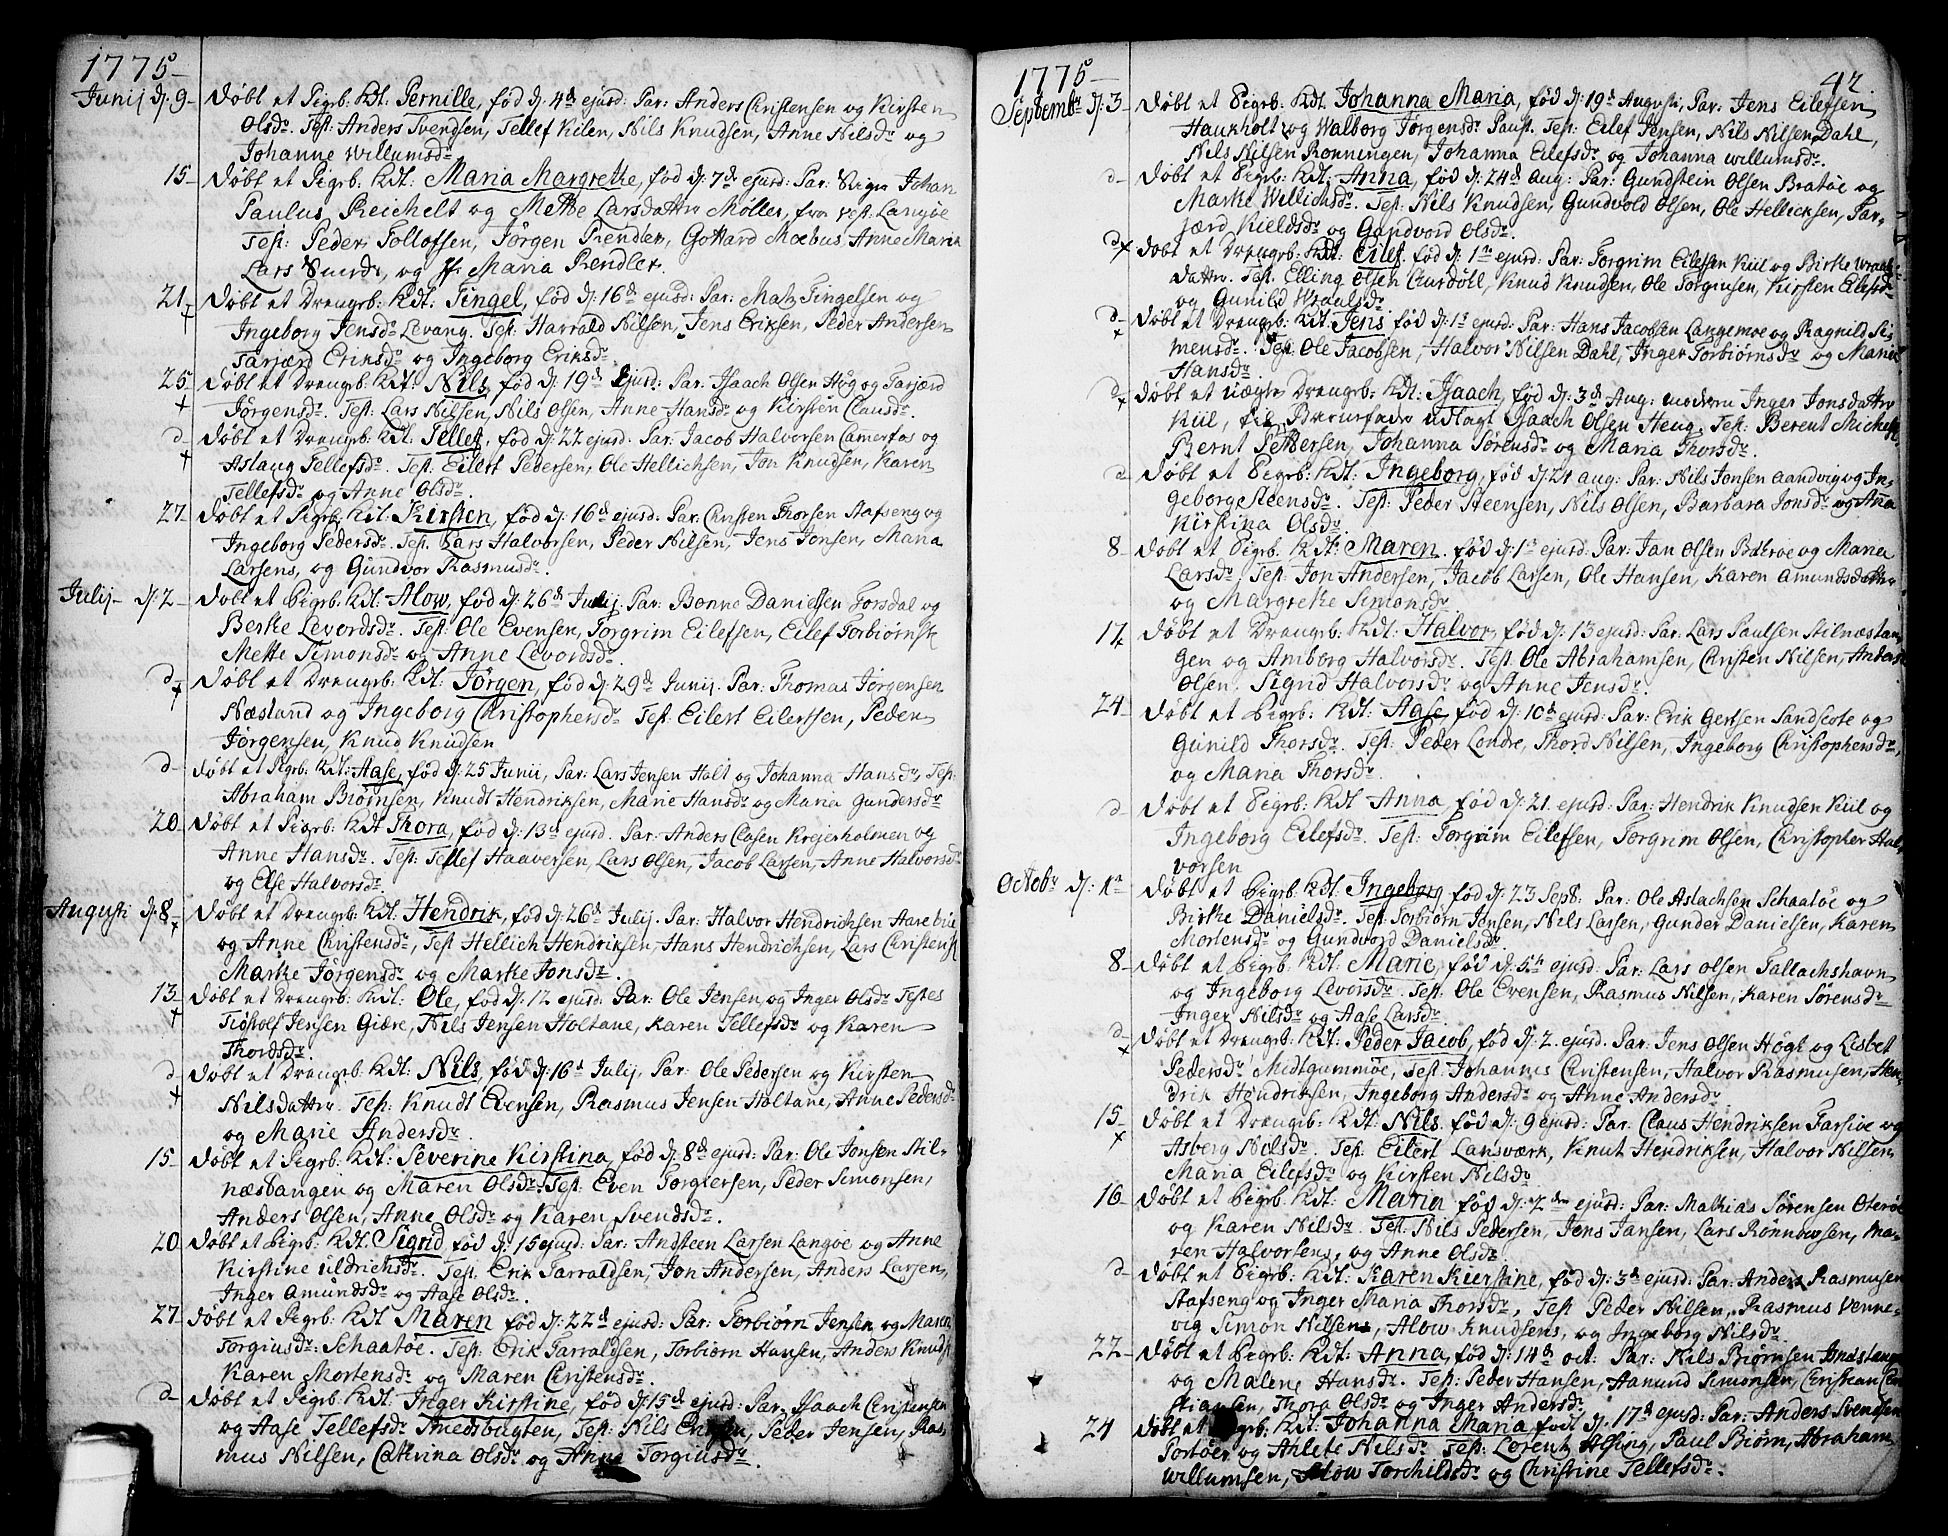 1775
Junij d: 9 Døbt et Pigrb: Kdt: Pernille, fød d: 4d ejusd: Par: Anders Christensen og Kirsten
Olsdr. Test: Anders Svendsen, Tellef Kilen, Nils Knudsen, Anne Nilsdr og
Johanne Willumsdr.
15 Døbt et Pigrb: Kdt: Maria Margrethe, fød d: 7d ejusd: Par: Sigr Johan
Paulus Reichelt og Mette Larsdattr Møller, fra Vest: Langøe
Test: Peder Tollofsen, Jørgen Rendler, Gottard Moebus, Anne Maria
Lars, og Jfr Maria Rendler.
21 Døbt et Drengb: Kdt: Tingel, fød d: 16d ejusd: Par: Matz Tingelsen og
Ingeborg Jensdr Levang. Test: Harrald Nilsen, Jens Eriksen, Peder Andersen
Tarjærd Eriksdr og Ingeborg Eriksdr
25 Døbt et Drengb: Kdt: Nils, fød d: 19d Ejusd: Par: Isaach Olsen Høg og Tarjærd
Jørgensdr. Test: Lars Nilsen, Nils Olsen, Anne Hansdr og Kirsten Clausdr.
d Døbt et Drengb: Kdt: Tellef, fød d: 22 ejusd: Par: Jacob Halvorsen Camerfos og
Aslaug Tellefsdr. Test: Eilert Pedersen, Ole Hellichsen, Jon Knudsen, Karen
Tellefsdr og Anne Olsdr.
27 Døbt et Pigrb: Kdt: Kirsten, fød d: 16d ejusd. Par: Christen Thorsen Stafseng og
Ingeborg Pedersdr. Test: Lars Halvorsen, Peder Nilsen, Jens Jonsen, Maria
Larsens, og Gundvor Rasmusdr.
Julij d: 2 Døbt et Pigrb: Kdt: Alow, fød d: 26d Julij. Par: Bonne Danielsen Torsdal og
Berthe Levordsdr. Test: Ole Evensen, Torgrim Eilefsen, Eilef Torbiørns
Mette Simonsdr og Anne Levordsdr.
d Døbt et Drengb: Kdt: Jørgen, fød d: 29d Junij. Par: Thomas Jørgensen
Næsland og Ingeborg Christophersdr Test: Eilert Eilertsen, Peder
Jørgensen, Knud Knudsen
d Døbt et Pigrb: Kdt: Aase, fød d: 25 Junij, Par: Lars Jensen Holt og Johanna Hansdr, Test:
Abraham Biørnsen, Knudt Hendriksen, Marie Hansdr og Maria Gundersdr
20 Døbt et Pigrb: Kdt Thora, fød d: 13d ejusd. Par: Anders Clasen Krejerholmen og
Anne Hansdr. Test: Tellef Haaversen, Lars Olsen, Jacob Larsen, Anne Halvorsdr
og Else Halvorsdr.
Augusti d: 8 Døbt et Drengb: Kdt: Hendrik, fød d: 26d Julij. Par: Halvor Hendrichsen Aarebue
og Anne Christensdr, Test Hellich Hendriksen, Hans Hendrichsen, Lars Christens
Marthe Jørgensdr og Marthe Jonsdr.
13 Døbt et Drengb: Kdt: Ole, fød d: 12 ejusd: Par: Ole Jensen og Inger Olsdr Testes
Tiøstolf Jensen Giære, Nils Jensen Holtane, Karen Tellefsdr og Karen
Thordsdr.
d Døbt et Drengb: Kdt: Nils, fød d: 16d Julij, Par: Ole Pedersen og Kirsten
Nilsdattr. Test: Knudt Evensen, Rasmus Jensen Holtane, Anne Pedersdr
og Marie Andersdr.
15 Døbt et Pigrb: Kdt: Severine Kirstina, fød d: 8d ejusd: Par: Ole Jonsen Stil-
næstangen og Maren Olsdr. Test: Even Torgiersen, Peder Simonsen,
Anders Olsen, Anne Olsdr og Karen Svendsdr.
20 Døbt et Pigrb: Kdt: Sigrid fød d: 15 ejusd: Par: Andsteen Larsen Langøe og Anne
Kirstine Uldrichsdr. Test: Erik Tarraldsen, Jon Andersen, Anders Larsen,
Inger Amundsdr og Aase Olsdr.
27 Døbt et Pigrb: Kdt Maren fød d: 22d ejusd: Par: Torbiørn Jensen og Maren
Torgiusdr Schaatøe. Test: Erik Tarraldsen, Torbiørn Hansen, Anders Knuds
Karen Mortensdr og Maren Christensdr.
d Døbt et Pigrb: Kdt. Inger Kirstine, fød d: 15d ejusd: Par: Isaach Christensen
og Aase Tellefsdr Smedsbugten, Test: Nils, Peder Jensen, Ras-
mus Nilsen, Cathrina Olsdr og Anna Torgiusdr.
1775 42.
Septembr d: 3 Døbt et Pigrb: Kdt. Johanna Maria, fød d: 19d Augusti, Par: Jens Eilefsen
Haukholt og Walborg Jørgensdr Paust. Test: Eilef Jensen, Nils Nilsen Dahl,
Nils Nilsen Rønningen, Johanna Eilefsdr og Johanna Willumsdr.
d Døbt et Pigrb: Kdt: Anna, fød d: 24d Aug: Par: Gundstein Olsen Bratøe og
Marthe Willichsdr. Test: Nils Knudsen, Gundvold Olsen, Ole Hellicksen, Tar-
jærd Kieldsdr og Gundvord Olsdr.
d Døbt et Drengb: Kdt Eilef fød d: 1de ejusd: Par: Torgrim Eilefsen Kiil og Birthe Wraals-
dattr. Test: Elling Olsen Buröll, Knud Knudsen, Ole Torgiusen, Kirsten Eilefsdr
og Gunild Wraalsdr
d Døbt et Drengb: Kdt: Jens fød d: 1st ejusd: Par: Hans Jacobsen Langemoe og Ragnild Si-
mensdr. Test: Ole Jacobsen, Halvor Nilsen Dahl, Inger Torbiørnsdr og Maria
Hansdr.
d Døbt et uægte Drengb: Kdt: Isaach, fød d: 3d Aug: modern Inger Jonsdattr
Kiil, til Barnefader udlagt Isaach Olsen Heug. Test: Berent Michels
Bernt Pettersen, Johanna Sørensdr og Maria Thorsdr.
d Døbt et Pigrb: Kdt: Ingeborg, fød d: 21 Aug: Par: Nils Jonsen Aandvig og In-
geborg Steensdr. Test: Peder Steensen, Nils Olsen, Barbara Jonsdr og Anna
Kirstina Olsdr.
8 Døbt et Pigrb: Kdt: Maren fød d: 1st ejusd: Par: Jan Olsen Batrøe og Maria
Larsdr. Test: Jon Andersen, Jacob Larsen, Ole Hansen, Karen Amundsdattr
og Margrethe Simonsdr
17 Døbt et Drengb: Kdt: Halvor, fød d: 13 ejusd: Par: Lars Paulsen Stilnæstan-
gen og Amborg Halvorsdr. Test: Ole Abrahamsen, Christen Nilsen, Anders
Olsen, Sigrid Halvorsdr og Anne Jensdr.
24 Døbt et Pigrb: Kdt: Aase, fød d: 10d ejusd: Par: Erik Gertsen Sandscote og
Gunild Thorsdr. Test: Peder Londre, Thord Nilsen, Ingeborg Christophersdr,
og Maria Thorsdr.
d Døbt et Pigrb: Kdt Anna, fød d: 21. ejusd: Par: Hendrik Knudsen Kiil og
Ingeborg Eilefsdr. Test: Torgrim Eilefsen, Torgrim Olsen, Christopher Hal-
vorsen
Octobr d: 1st Døbt et Pigrb: Kdt. Ingeborg, fød d: 23 Septb. Par: Ole Aslachsen Schaatøe og
Birthe Danielsdr. Test: Torbiørn Jensen, Nils Larsen, Gunder Danielsen, Karen
Mortensdr og Gundvord Danielsdr.
8 Døbt et Pigrb: Kdt: Marie, fød d: 5th ejusd: Par: Lars Olsen Tallachshavn
og Ingeborg Levorsdr. Test: Ole Evensen, Rasmus Nilsen, Karen Sørensdr
Inger Nilsdr og Aase Larsdr.
d Døbt et Drengb: Kdt: Peder Jacob, fød d: 2. ejusd. Par: Jens Olsen Høgt og Lisbet
Pedersdr Midtgummøe, Test: Johannes Christensen, Halvor Rasmusen, Hen-
drik Hendriksen, Ingeborg Andersdr og Anne Andersdr.
15 Døbt et Drengb: Kdt: Nils fød d: 9 ejusd: Par: Claus Hendriksen Farsiøe og
Asberg Nilsdr. Test: Eilert Lansværk, Knut Hendriksen, Halvor Nilsen,
Maria Eilefsdr og Kirsten Nilsdr.
16 Døbt et Pigrb: Kdt: Maria fød d: 2den ejusd: Par: Mathias Sørensen Oterøe
og Karen Nilsdr. Test: Nils Pedersen, Jens Jansen, Lars Rønnowsen, Ma-
ren Halvorsens, og Anne Olsdr
d Døbt et Pigrb: Kdt: Karen Kierstine, fød d: 3d ejusd: Par: Anders Rasmusen
Stafseng og Inger Maria Thorsdr, Test Peder Nilsen, Rasmus Venne-
vig Simon Nilsens, Alow Knudsens, og Ingeborg Nilsdr.
22 Døbt et Pigrb: Kdt: Anna, fød d: 14de Oct: Par: Nils Biørnsen
og Malene Hansdr. Test: Peder Hansen, Aamund Simonsen, Christian
stiansen, Thora Olsdr og Inger Andersdr.
24 Døbt et Pigrb: Kdt: Johanna Maria fød d. 17d ejusd: Par: Anders Svendsen
Tortøer og Ahlete Nilsdr Test: Lorentz Alfsing, Paul Biørn, Abraham
Willumsen, Alow Torchildsdr og Christine Tellefsdr.